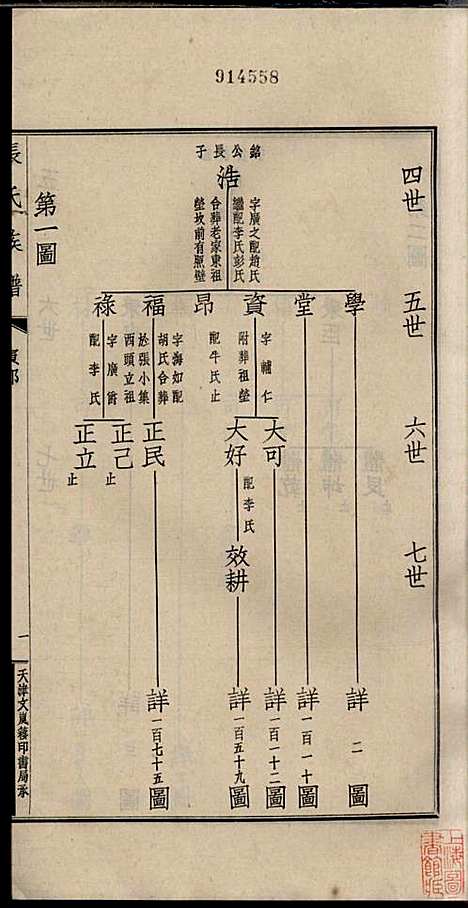 914558
四世
五世
六世
七世
銘公長子
浩
字廣之配趙氏
繼配李氏彭氏
合葬老家東祖
塋坎前有照壁
學
堂
資
昂
福
祿
字輔仁
附葬祖塋
配牛氏止
字海如配
胡氏合葬
於張小集
西頭立祖
字廣衡
配李氏
大可
大好
配李氏
效耕
正民
正己
止
正立
止
詳二圖
詳一百一十圖
詳一百一十二圖
詳一百五十九圖
詳一百七十五圖
第一圖
長氏族譜
一
天津文嵐簃印書局承
上海圖
書館藏